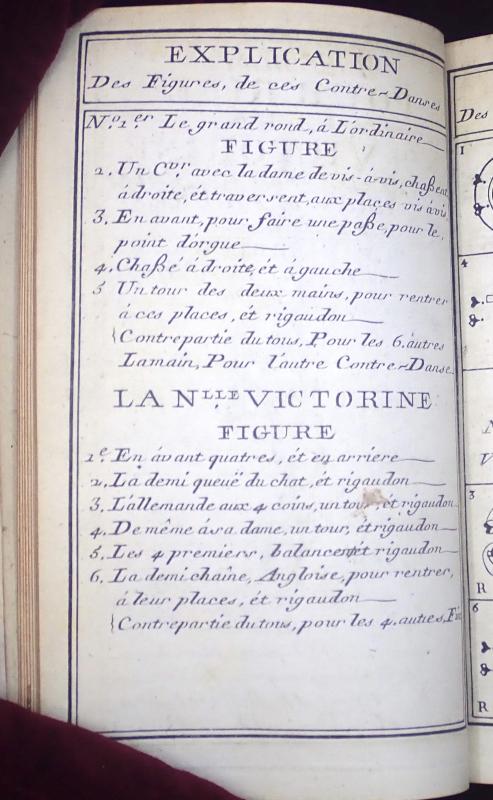 EXPLICATION
Des Figures, de ces Contre-Danses
N.o 1.er Le grand rond, á L'ordinaire
FIGURE
2. Un C.vr avec la dame de vis-á-vis, chaßent
á droite, ét traversent, aux places vis á vis
3. En avant, pour faire une paße, pour le
point d'orgue
4. Chaßé á droite, ét á gauche
5 Un tour des deux mains, pour rentrer
á ces places, ét rigaudon
{Contrepartie du tous, Pour les 6. autres
Lamain, Pour l'autre Contre-Danse
LA N.LLE VICTORINE
FIGURE
1.e En ávant quatres, ét en arriere
2. La demi queuë du chat, ét rigaudon
3. L'allemande aux 4 coins, un tour, ét rigaudon
4. De même á sa dame, un tour, ét rigaudon
5. Les 4 premiers, balancent ét rigaudon
6. La demi chaîne, Angloise, pour rentrer,
á leur places, ét rigaudon
{Contrepartie du tous, pour les 4. autres, Fin
Des
1
4
3
R
6
R